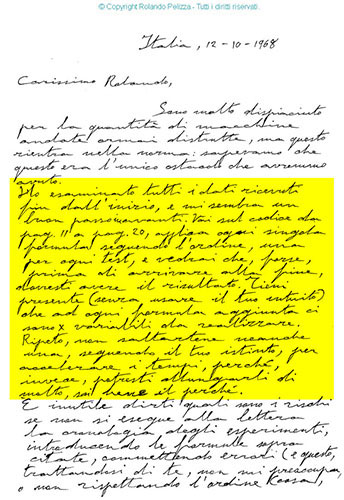 © Copyright Rolando Pelizza - Tutti i diritti riservati.
Italia, 12-10-1968
Carissimo Rolando,
Sono molto dispiaciuto
per la quantità di macchine
andate ormai distrutte, ma questo
rientra nella norma; sapevamo che
questo era l'unico ostacolo che avremmo
avuto.
Ho esaminato tutti i dati ricevuti
fin dall'inizio, e mi sembra un
buon passo avanti. Vai sul codice da
pag. 11 a pag. 20, applica ogni singola
formula seguendo l'ordine, una
per ogni test, e vedrai che, forse,
prima di arrivare alla fine,
dovresti avere il risultato. Tieni
presente (senza usare il tuo intuito)
che ad ogni formula aggiunta ci
sono x variabili da realizzare.
Ripeto, non saltartene neanche
una, seguendo il tuo istinto, per
accelerare i tempi, perché,
invece, potresti allungarli di
molto, sai bene il perché.
È inutile dirti quali sono i rischi
se non si esegue alla lettera
la cronologia degli esperimenti,
introducendo le formule sopra
citate, commettendo errori (e questo,
trattandosi di te, non mi preoccupa,
o non rispettando l'ordine